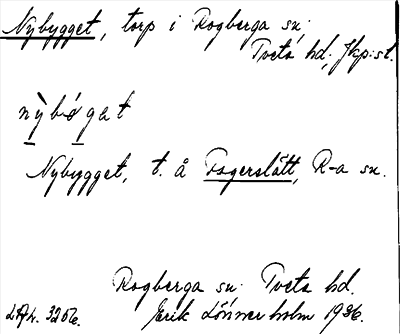 Nybygget, torp i Rogberga sn;
Tveta hd, Jkp:st.
nỳbǿgat
Nybygget, t. å Fagerslätt, R-a sn.
Rogberga sn. Tveta hd.
Erik Lönnerholm 1936.